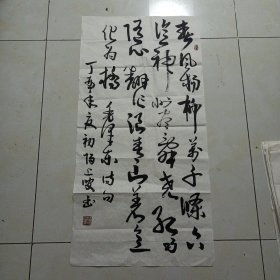 春风杨柳万千条六
亿神州尽舜尧红雨
随心翻作浪青山着意
化为桥 毛泽东诗句
丁酉年夏初 书